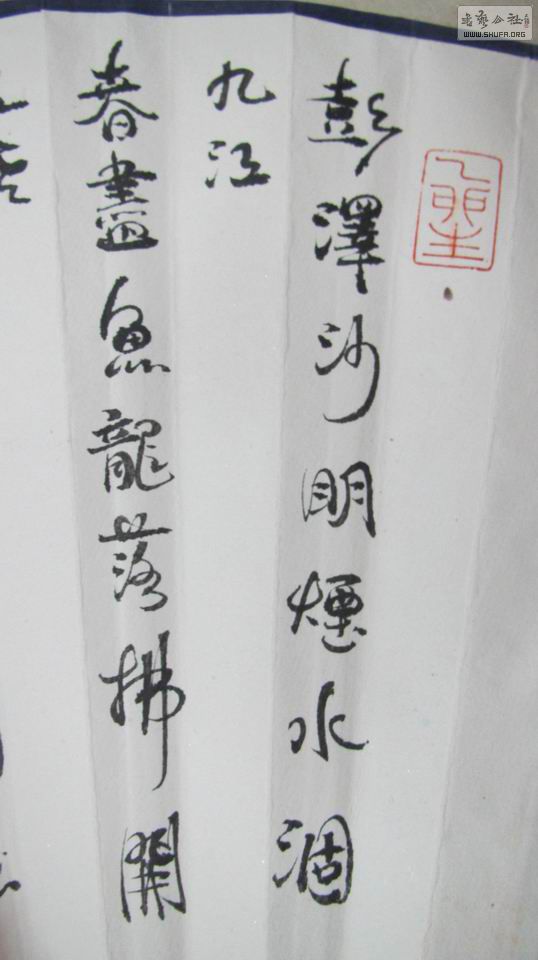 彭澤沙明煙水涸
九江
春盡魚龍落拂開
書藝公社
WWW.SHUFA.ORG